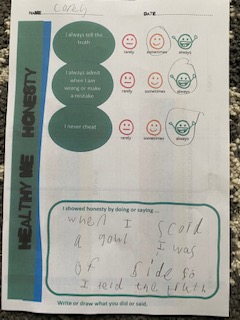 NAME Corey DATE
I always tell the truth
rarely sometimes always
I always admit when I am wrong or make a mistake
rarely sometimes always
I never cheat
rarely sometimes always
HEALTHY ME HONESTY
I showed honesty by doing or saying ...
when I scord
a gowl I was
of side so
I said the truth
Write or draw what you did or said.